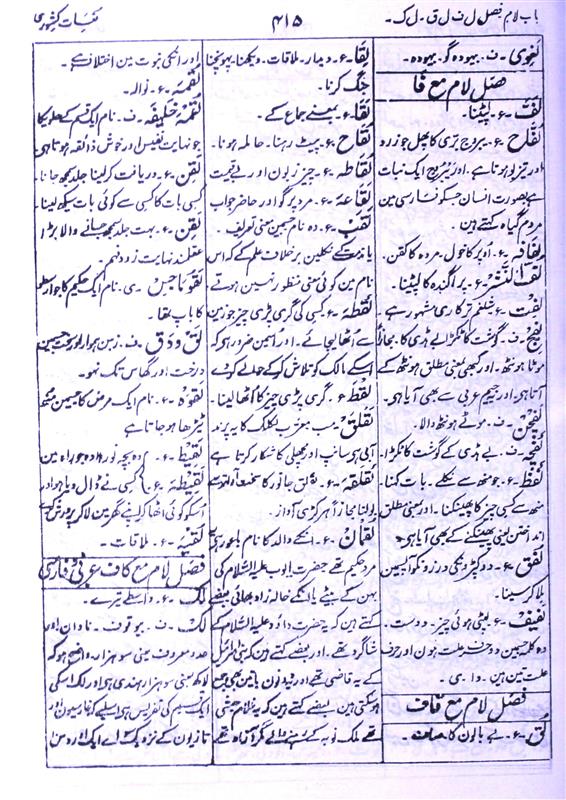 باب لام فصل ل ف ل ق۔ ل ک۔
۴۱۵
لغات کشوری
لغوی۔ ف۔ بیہودہ گو۔ بیہودہ۔
فصل لام مع فا
لَفّ۔ ع۔ لپٹنا۔
لُفّاح۔ ع۔ یبروج بڑی کا پھل جو زرد
اور تیز بو ہوتا ہے۔ اور یبروج ایک نبات
ہے بصورت انسان جسکو فارسی مین
مردم گیاہ کہتے ہین
لفافہ۔ ع۔ اوپر کا خول۔ مردہ کا کفن۔
لفّ النشر۔ ع۔ پراگندہ کا لپٹنا۔
لِفت۔ ع۔ شلغم ترکاری مشہور ہے۔
لفج۔ ف۔ گوشت کا ٹکڑا بے ہڈی کا۔ مجازاً
موٹا ہونٹھ۔ اور کبھی بمعنی مطلق ہونٹھ کے
آتا ہے۔ اور جیم عربی سے بھی آیا ہی۔
لفجن۔ ف۔ موٹے ہونٹھ والا۔
لفچہ۔ ف۔ بے ہڈی کے گوشت کا ٹکڑا۔
لفظ۔ ع۔ جو منھ سے نکلے۔ بات کہنا۔
منھ سے کسی چیز کا پھینکنا۔ اور بمعنی مطلق
انداختن یعنی پھینکنے کے بھی آیا ہی۔
لفق۔ ع۔ دو کپڑونکی درزو نکو آپسمین
ملا کر سینا۔
لفیف۔ ع۔ لپٹی ہوئی چیز۔ دوست۔
وہ کلمہ جسمین دو حرف علت ہون اور حرف
علت تین ہین۔ و ا ی۔
فصل لام مع قاف
لُق۔ ع۔ بے بالون کا۔ صاف۔
لِقا۔ ع۔ دیدار۔ ملاقات۔ دیکھنا۔ پہونچنا
جنگ کرنا۔
لقا۔ ع۔ بمعنے جماع کے۔
لقاح۔ ع۔ پیٹ رہنا۔ حاملہ ہونا۔
لقاطہ۔ ع۔ چیز زبون اور بے قیمت
لقاعہ۔ ع۔ مرد پرگو اور حاضر جواب
لقب۔ ع۔ وہ نام جسمین معنی تعریف۔
یا مذمت کے نکلین برخلاف علم کے کہ اس
نام مین کوئی معنی منظور نہین ہوتے
لقطہ۔ ع۔ کسی کی گری پڑی چیز جو زمین
سے اُٹھا لیجائے۔ اور اسمین ضرور ہے کہ
اسکے مالک کو تلاش کرکے حوالے کرے
لقط۔ ع۔ گری پڑی چیز کا اُٹھا لینا۔
لقلق۔ ع۔ معرب لکلک کا یہ پرند
آبی ہی سانپ اور مچھلی کا شکار کرتا ہے
لقلقہ۔ ع۔ لقلق جانور کا
بولنا مجازاً ہر کڑی آواز۔
لقمان۔ ع۔ نام
مرد حکیم تھے حضرت ایوب علیہ السلام کی
بہن کے بیٹے یا انکے خالہ زاد بھائی بعضے
کہتے ہین کہ یہ حضرت داؤد علیہ السلام کے
شاگرد تھے۔ اور بعضے کہتے ہین کہ بنی اسرائیل
کے یہ قاضی تھے
ہو سکتی ہین۔ بعضے کہتے ہین کہ یہ غلام حبشی
تھے ملک نوبہ کے رہنے والے مگر آزاد تھے
اور انکی نبوت مین اختلاف ہے۔
لقمہ۔ ع۔ نوالہ۔
لقمۂ خلیفہ۔ ف۔ نام ایک قسم کے حلوے کا
جو نہایت نفیس اور خوش ذائقہ ہوتا ہی
لقن۔ ع۔ دریافت کر لینا جلد سمجھ جانا۔
کسی بات کا کسی سے کوئی بات سیکھ لینا۔
لقن۔ ع۔ بہت جلد سمجھ جانے والا بڑا
عقلمند نہایت زود فہم۔
لقوماجس۔ ی۔ نام ایک حکیم کا جو ارسطو
کا باپ تھا۔
لق و دق۔ ف۔ زمین ہموار اور سخت جسمین
درخت اور گھاس تک نہو۔
لقوہ۔ ع۔ نام ایک مرض کا جسمین منھ
ٹیڑھا ہو جاتا ہے
لقیط۔ ع۔ وہ بچہ نوزادہ جو راہ مین
لقیطہ۔ ع۔ کسی نے ڈال دیا ہو اور
اسکو کوئی اٹھا کر اپنے گھر مین لا کر پرورش کرے
لقیہ۔ ع۔ ملاقات۔
فصل لام مع کاف عربی و فارسی
لک۔ ع۔ واسطے تیرے۔
لک۔ ف۔ بیوقوف۔ نادان اور
عدد معروف یعنی سو ہزار۔ واضح ہو کہ
لاکھ یعنی سو ہزار ہندی ہی اور لک اسکی
ایک قسم کی تفریس ہی اسلیے کہ فارسیون اور
تازیون کے نزدیک